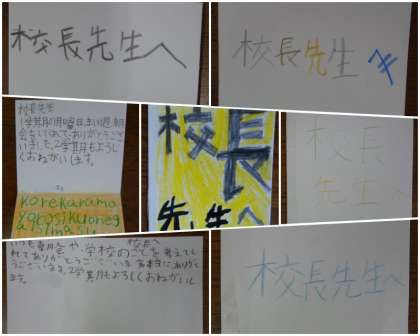 校長先生へ
校長先生へ
校長先生
1学期の月曜日、毎週、朝
会をしてくれて、ありがとうござ
いました。2学期もよろし
くおねがいします。
korekaramo
yorosikuoneg
aisimasu
校長
先生へ
校長
先生へ
校長へ
いつも朝会や、学校のことを考えてく
れてありがとうございます。
2学期もよろしくおねがいし
ます。
校長先生へ